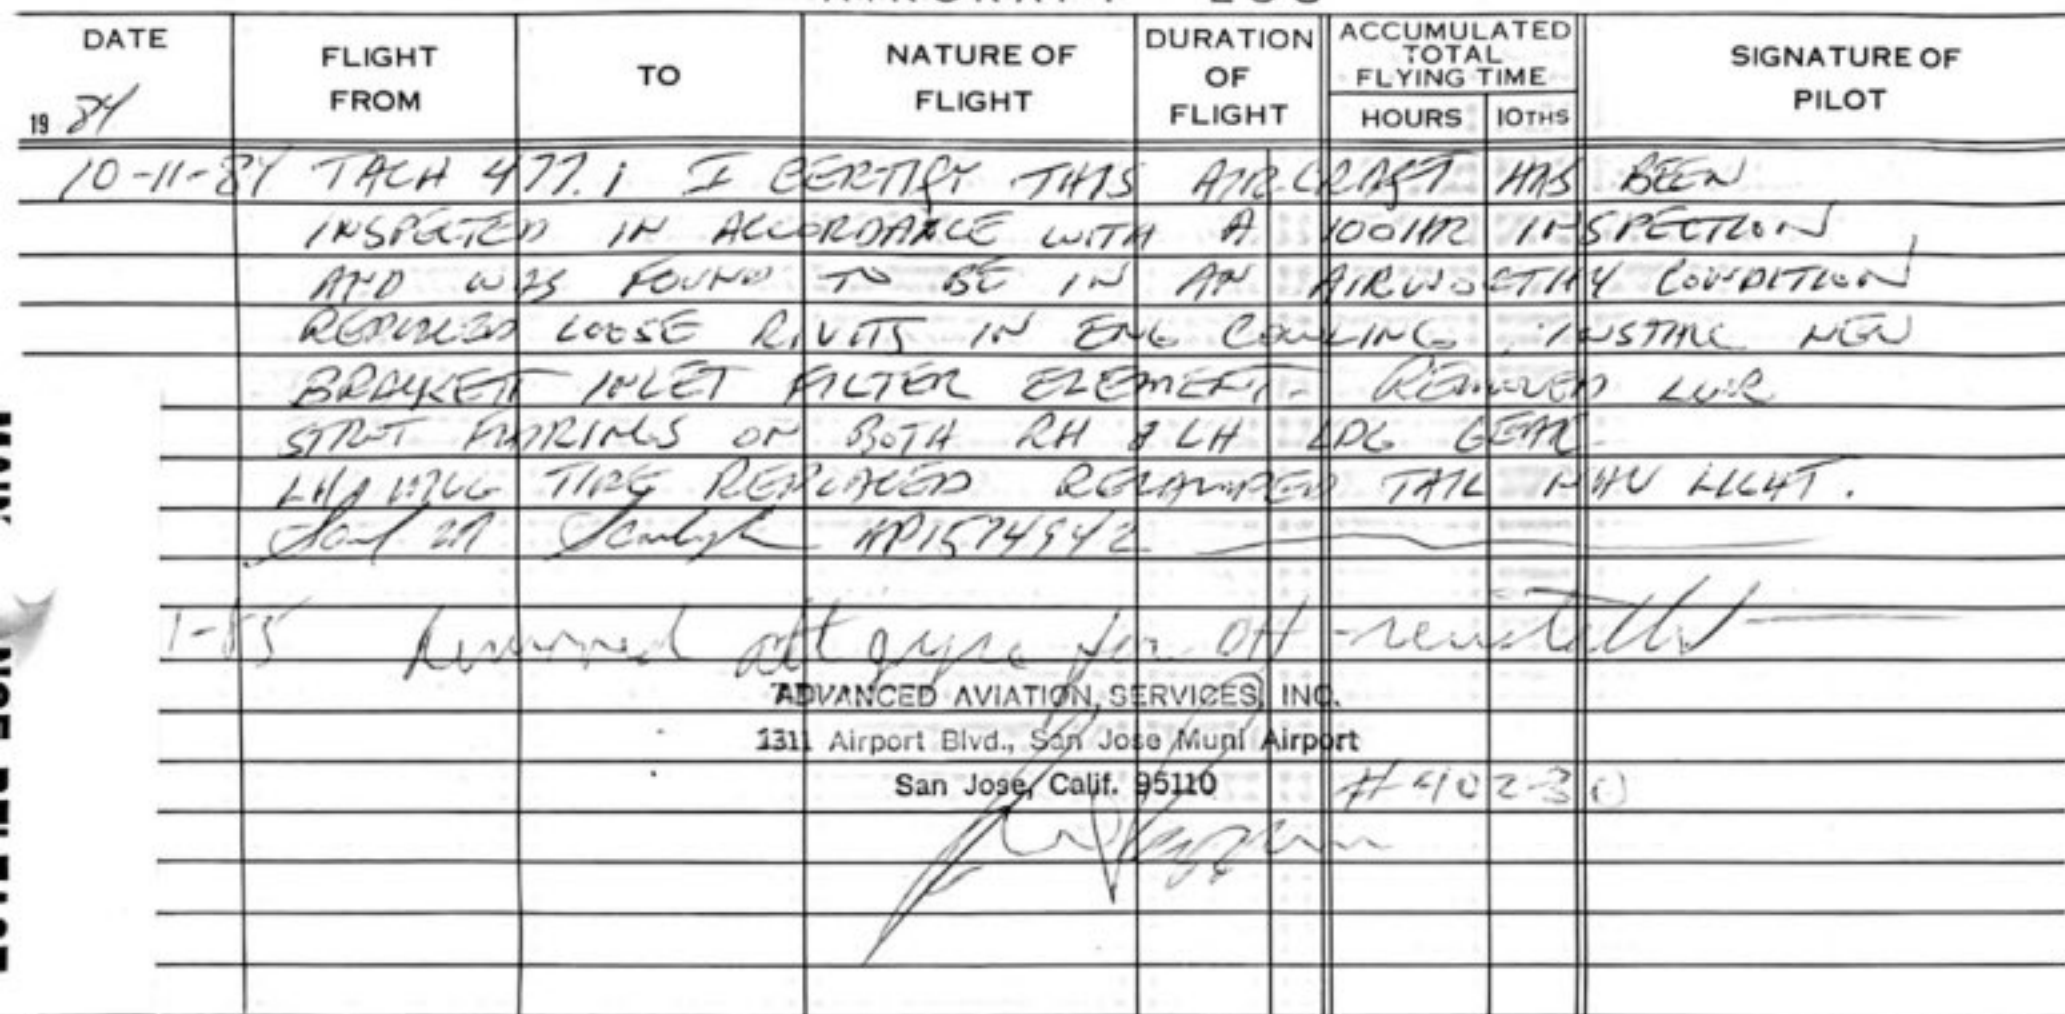 DATE
FLIGHT FROM
TO
NATURE OF FLIGHT
DURATION OF FLIGHT
ACCUMULATED TOTAL FLYING TIME
HOURS
10THS
SIGNATURE OF PILOT
19 84
10-11-84 TACH 477.1 I CERTIFY THIS AIRCRAFT HAS BEEN
INSPECTED IN ACCORDANCE WITH A 100HR INSPECTION
AND WAS FOUND TO BE IN AN AIRWORTHY CONDITION
REPLACED LOOSE RIVITS IN ENG COWLING, INSTALL NEW
BRACKETT INLET FILTER ELEMENT. REMOVED LWR
STRUT FAIRINGS ON BOTH RH & LH LDG GEAR
TIRE REPLACED RELAMPED TAIL NAV LIGHT.
AP1574942
1-85 Removed att gyro for OH - reinstalled
ADVANCED AVIATION SERVICES, INC.
1311 Airport Blvd., San Jose Muni Airport
San Jose, Calif. 95110
#402-30